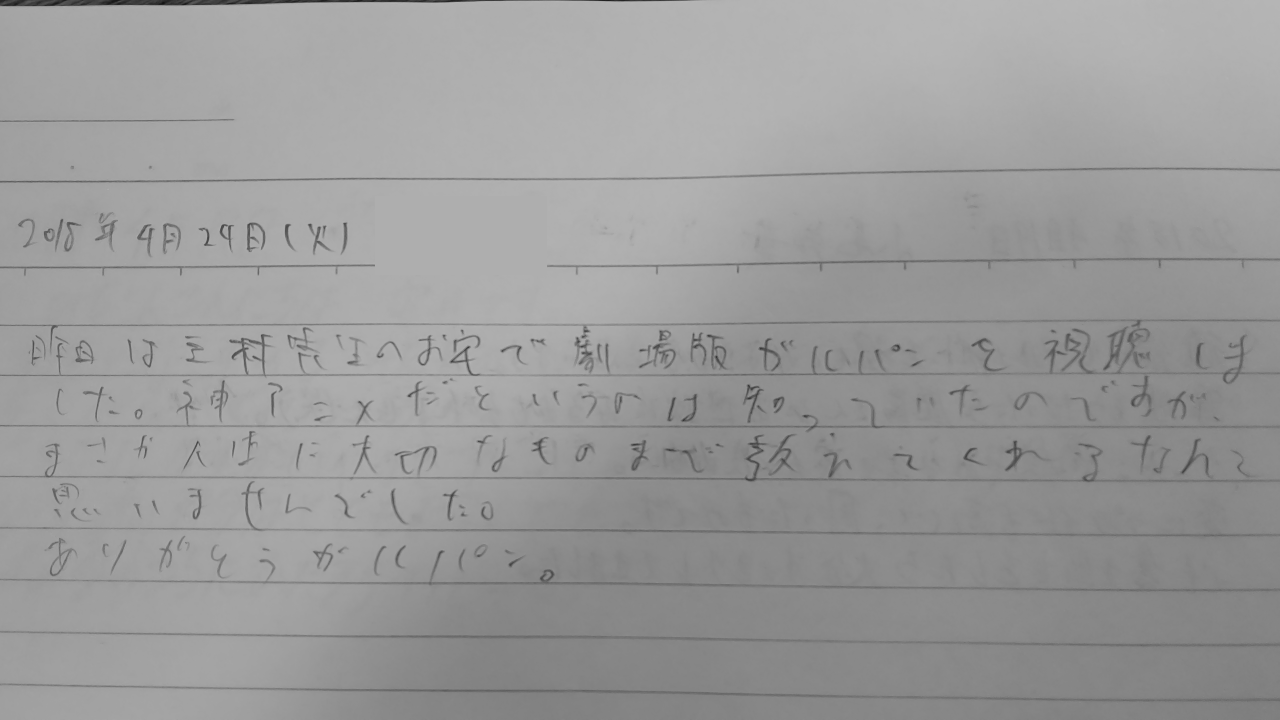 2018年4月24日(火)
昨日は玉村先生のお宅で劇場版ガルパンを視聴しま
した。神アニメだというのは知っていたのですが、
まさか人生に大切なものまで教えてくれるなんて
思いませんでした。
ありがとうガルパン。